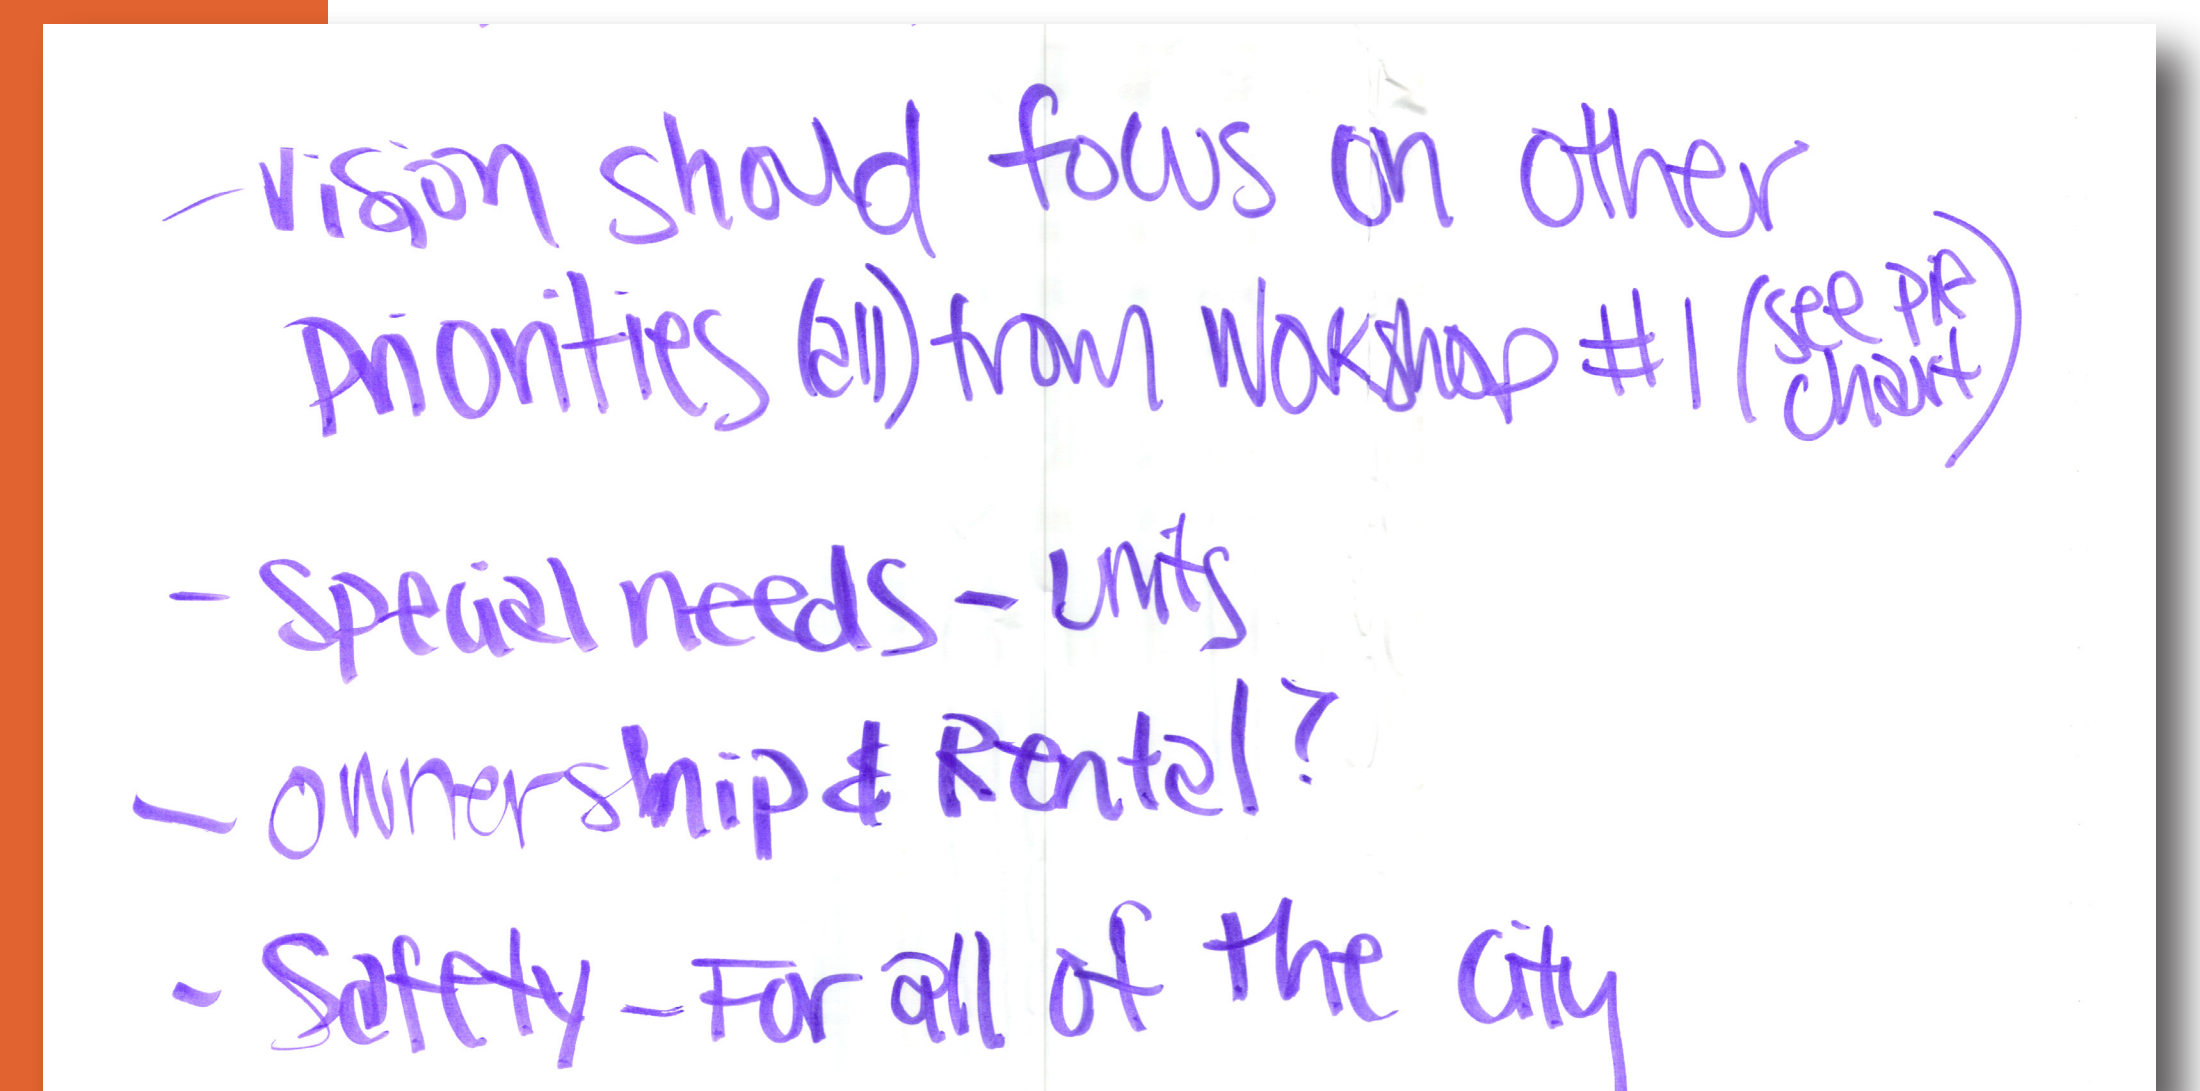 - Vision should focus on other
Priorities (all) from Wokshop #1 (see pie chart)
- Special needs - units
- Ownership & Rental?
- Safety - For all of the City